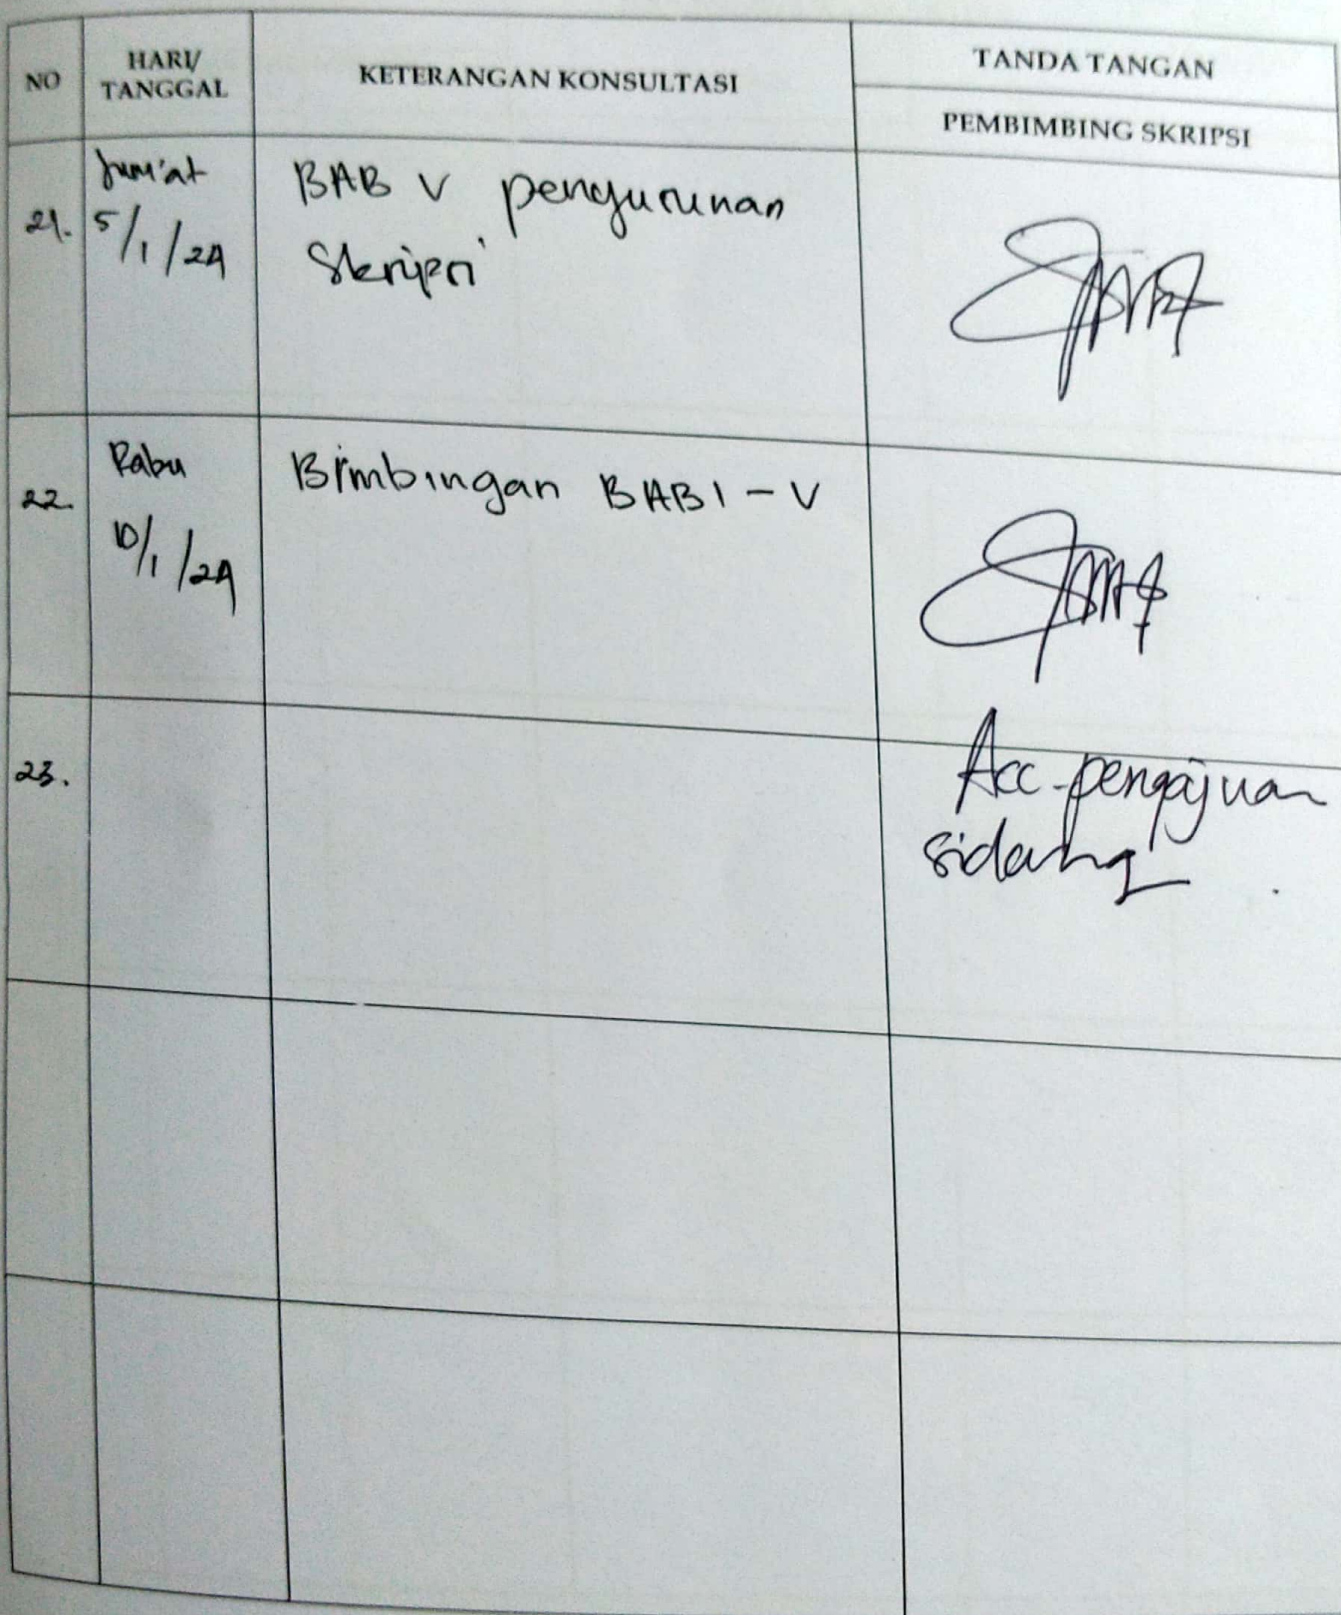 NO
HARI/
TANGGAL
KETERANGAN KONSULTASI
TANDA TANGAN
PEMBIMBING SKRIPSI
21.
Jum'at
5/1/24
BAB V penyusunan
Skripsi
22.
Rabu
10/1/24
Bimbingan BAB I - V
23.
Acc pengajuan
sidang